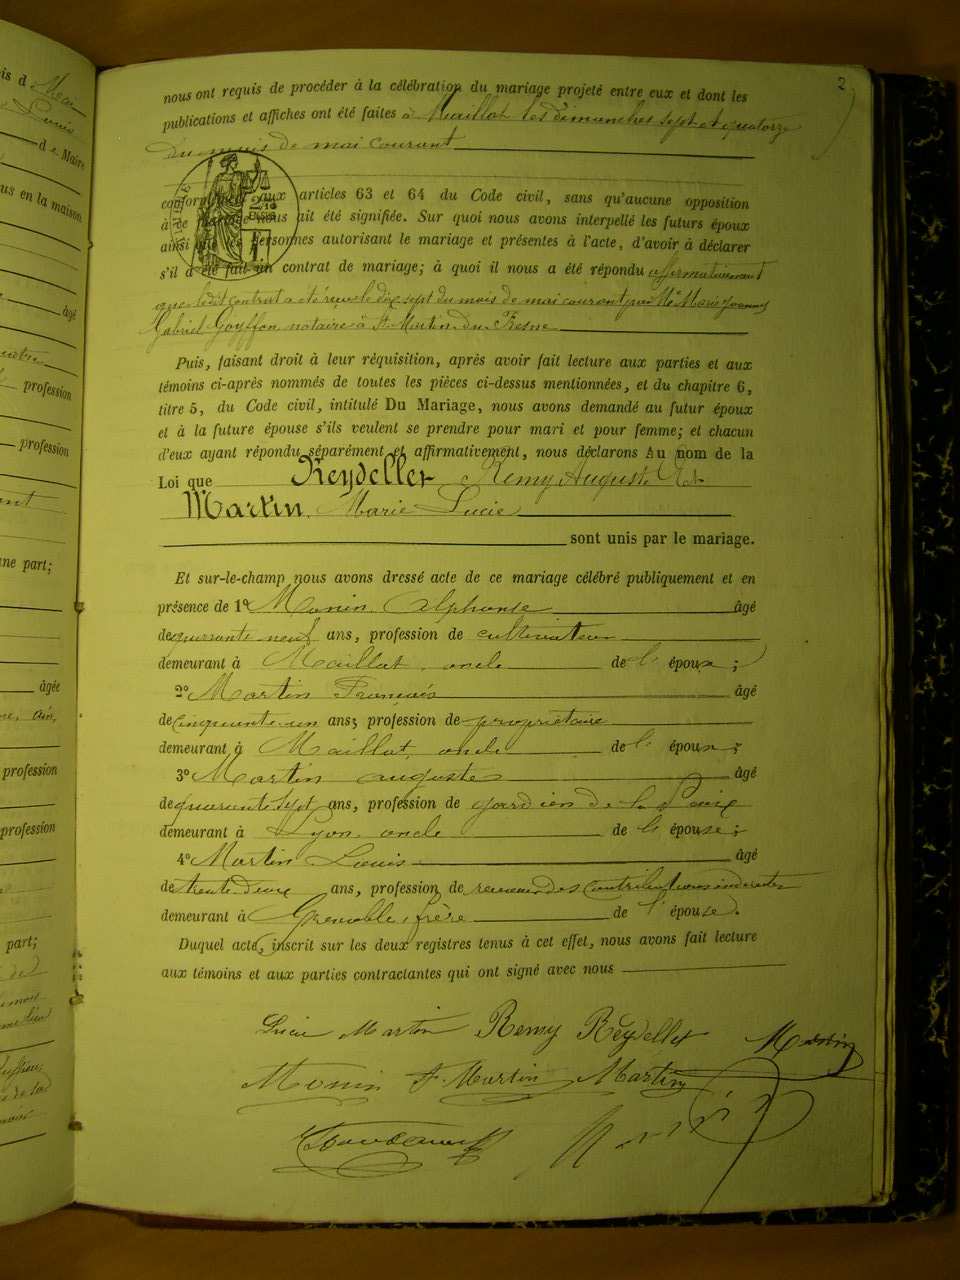 2
nous ont requis de procéder à la célébration du mariage projeté entre eux et dont les
publications et affiches ont été faites à Maillat les dimanches sept et quatorze
du mois de mai courant
conformément aux articles 63 et 64 du Code civil, sans qu'aucune opposition
à ce mariage nous ait été signifiée. Sur quoi nous avons interpellé les futurs époux
ainsi que les personnes autorisant le mariage et présentes à l'acte, d'avoir à déclarer
s'il a été fait un contrat de mariage; à quoi il nous a été répondu affirmativement
que ledit contrat a été reçu le dix sept du mois de mai courant par Me Marie Joanny
Gabriel Goyffon notaire à St Martin du Fresne
Puis, faisant droit à leur réquisition, après avoir fait lecture aux parties et aux
témoins ci-après nommés de toutes les pièces ci-dessus mentionnées, et du chapitre 6,
titre 5, du Code civil, intitulé Du Mariage, nous avons demandé au futur époux
et à la future épouse s'ils veulent se prendre pour mari et pour femme; et chacun
d'eux ayant répondu séparément et affirmativement, nous déclarons Au nom de la
Loi que Reydellet, Remy Auguste Et
Martin, Marie Lucie
sont unis par le mariage.
Et sur-le-champ nous avons dressé acte de ce mariage célébré publiquement et en
présence de 1º Monin Alphonse âgé
de quarante neuf ans, profession de cultivateur
demeurant à Maillat, oncle de l' épouse;
2º Martin François âgé
de cinquante un ans, profession de propriétaire
demeurant à Maillat, oncle de l' épouse;
3º Martin auguste âgé
de quarante sept ans, profession de gardien de la Paix
demeurant à Lyon, oncle de l' épouse;
4º Martin Louis âgé
de trente deux ans, profession de receveur des Contributions indirectes
demeurant à Grenoble, frère de l' épouse.
Duquel acte, inscrit sur les deux registres tenus à cet effet, nous avons fait lecture
aux témoins et aux parties contractantes qui ont signé avec nous
Lucie Martin Remy Reydellet Martin
Monin F. Martin Martin